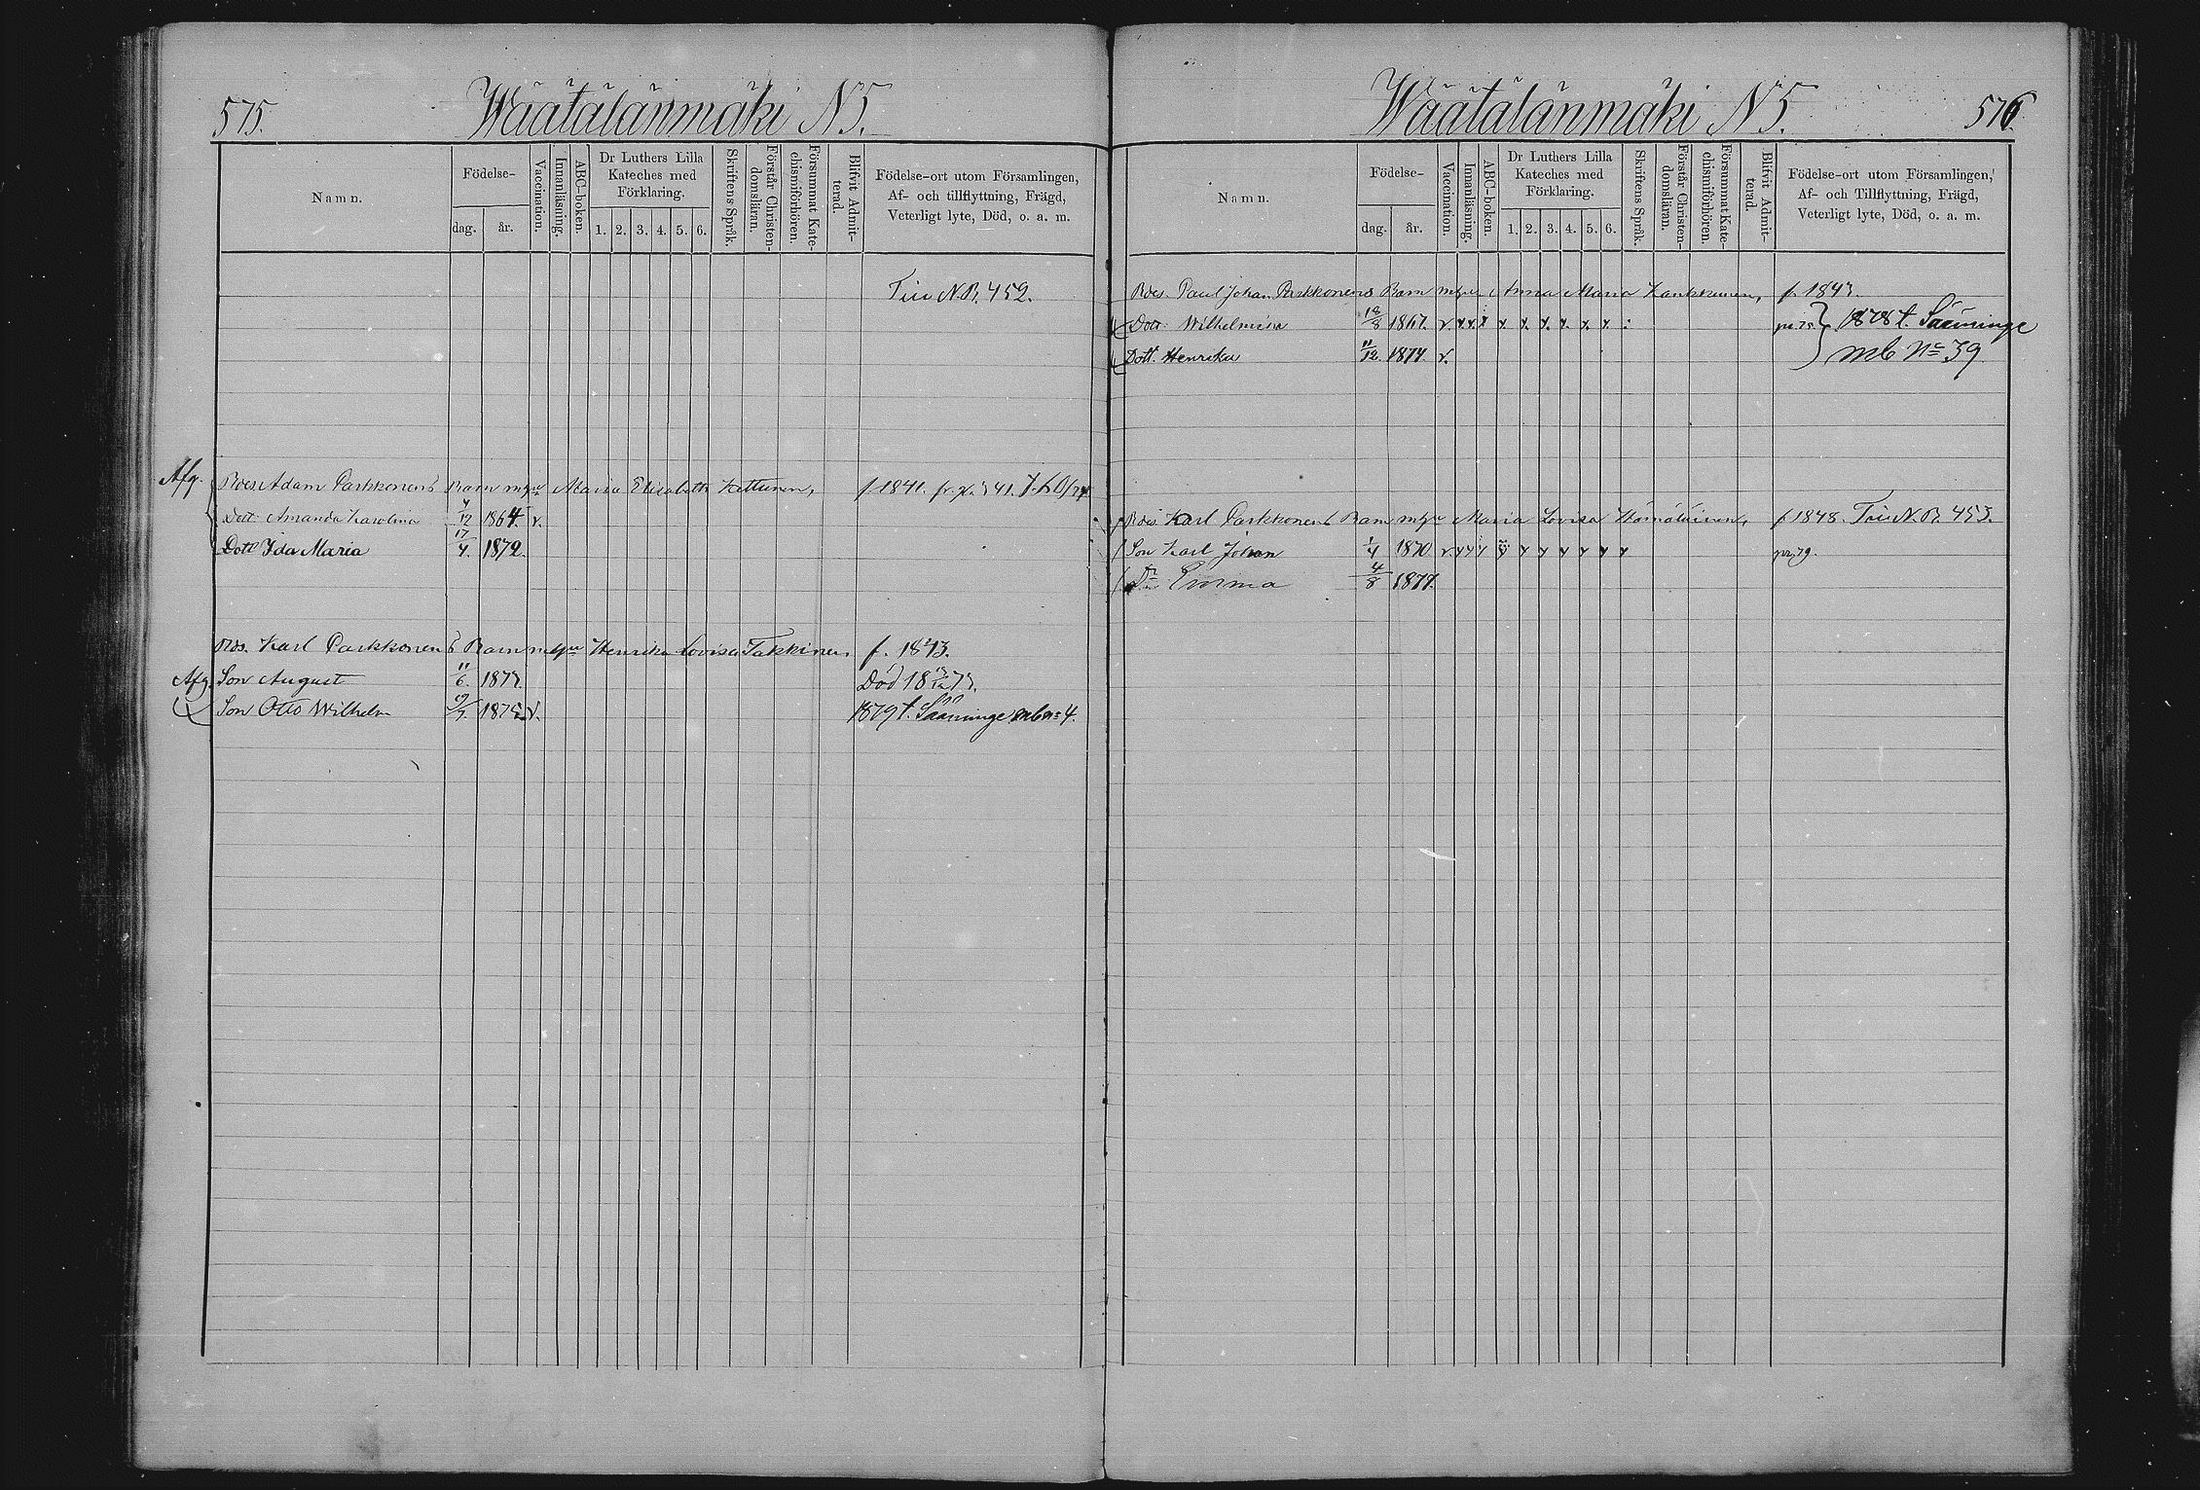 575. Wäätälänmäki N5.
Namn.
Födelse-
dag. år.
Vaccination.
Innanläsning.
ABC-boken.
Dr Luthers Lilla
Kateches med
Förklaring.
1. 2. 3. 4. 5. 6.
Skriftens Språk.
Förstår Christen-
domsläran.
Försummat Kate-
chismiförhören.
Blifvit Admit-
terad.
Födelse-ort utom Församlingen,
Af- och tillflyttning, Frägd,
Veterligt lyte, Död, o. a. m.
N.B. 452.
Afg. Adam Parkkonens Barn Maria Elisabeth Kettunen, f. 1841.
Dott. Amanda Karolina 7/12 1864. v.
Dott. Ida Maria 17/4. 1872.
Karl Parkkonens Barn Henrika Lovisa Takkinen. f. 1843.
Afg. Son August 11/6. 1873. Död 18 73.
Son Otto Wilhelm 1875. v. 1879 t. Sääminge mb n= 4.
Wäätälänmäki N5. 576.
Namn.
Födelse-
dag. år.
Vaccination.
Innanläsning.
ABC-boken.
Dr Luthers Lilla
Kateches med
Förklaring.
1. 2. 3. 4. 5. 6.
Skriftens Språk.
Förstår Christen-
domsläran.
Försummat Kate-
chismiförhören.
Blifvit Admit-
terad.
Födelse-ort utom Församlingen,
Af- och Tillflyttning, Frägd,
Veterligt lyte, Död, o. a. m.
Paul Johan Parkkonens Barn Anna Maria Kankkunen, f. 1843.
Dott. Wilhelmina 18/8 1867. v. 1878 t. Sääminge
Dott. Henrika 11/12. 1874. v. mb No= 39
Karl Parkkonens Barn Maria Lovisa Hämäläinen, f 1848. N.B. 453.
Son Karl Johan 1/4 1870. v. pr. 79.
Emma 4/8 1877.